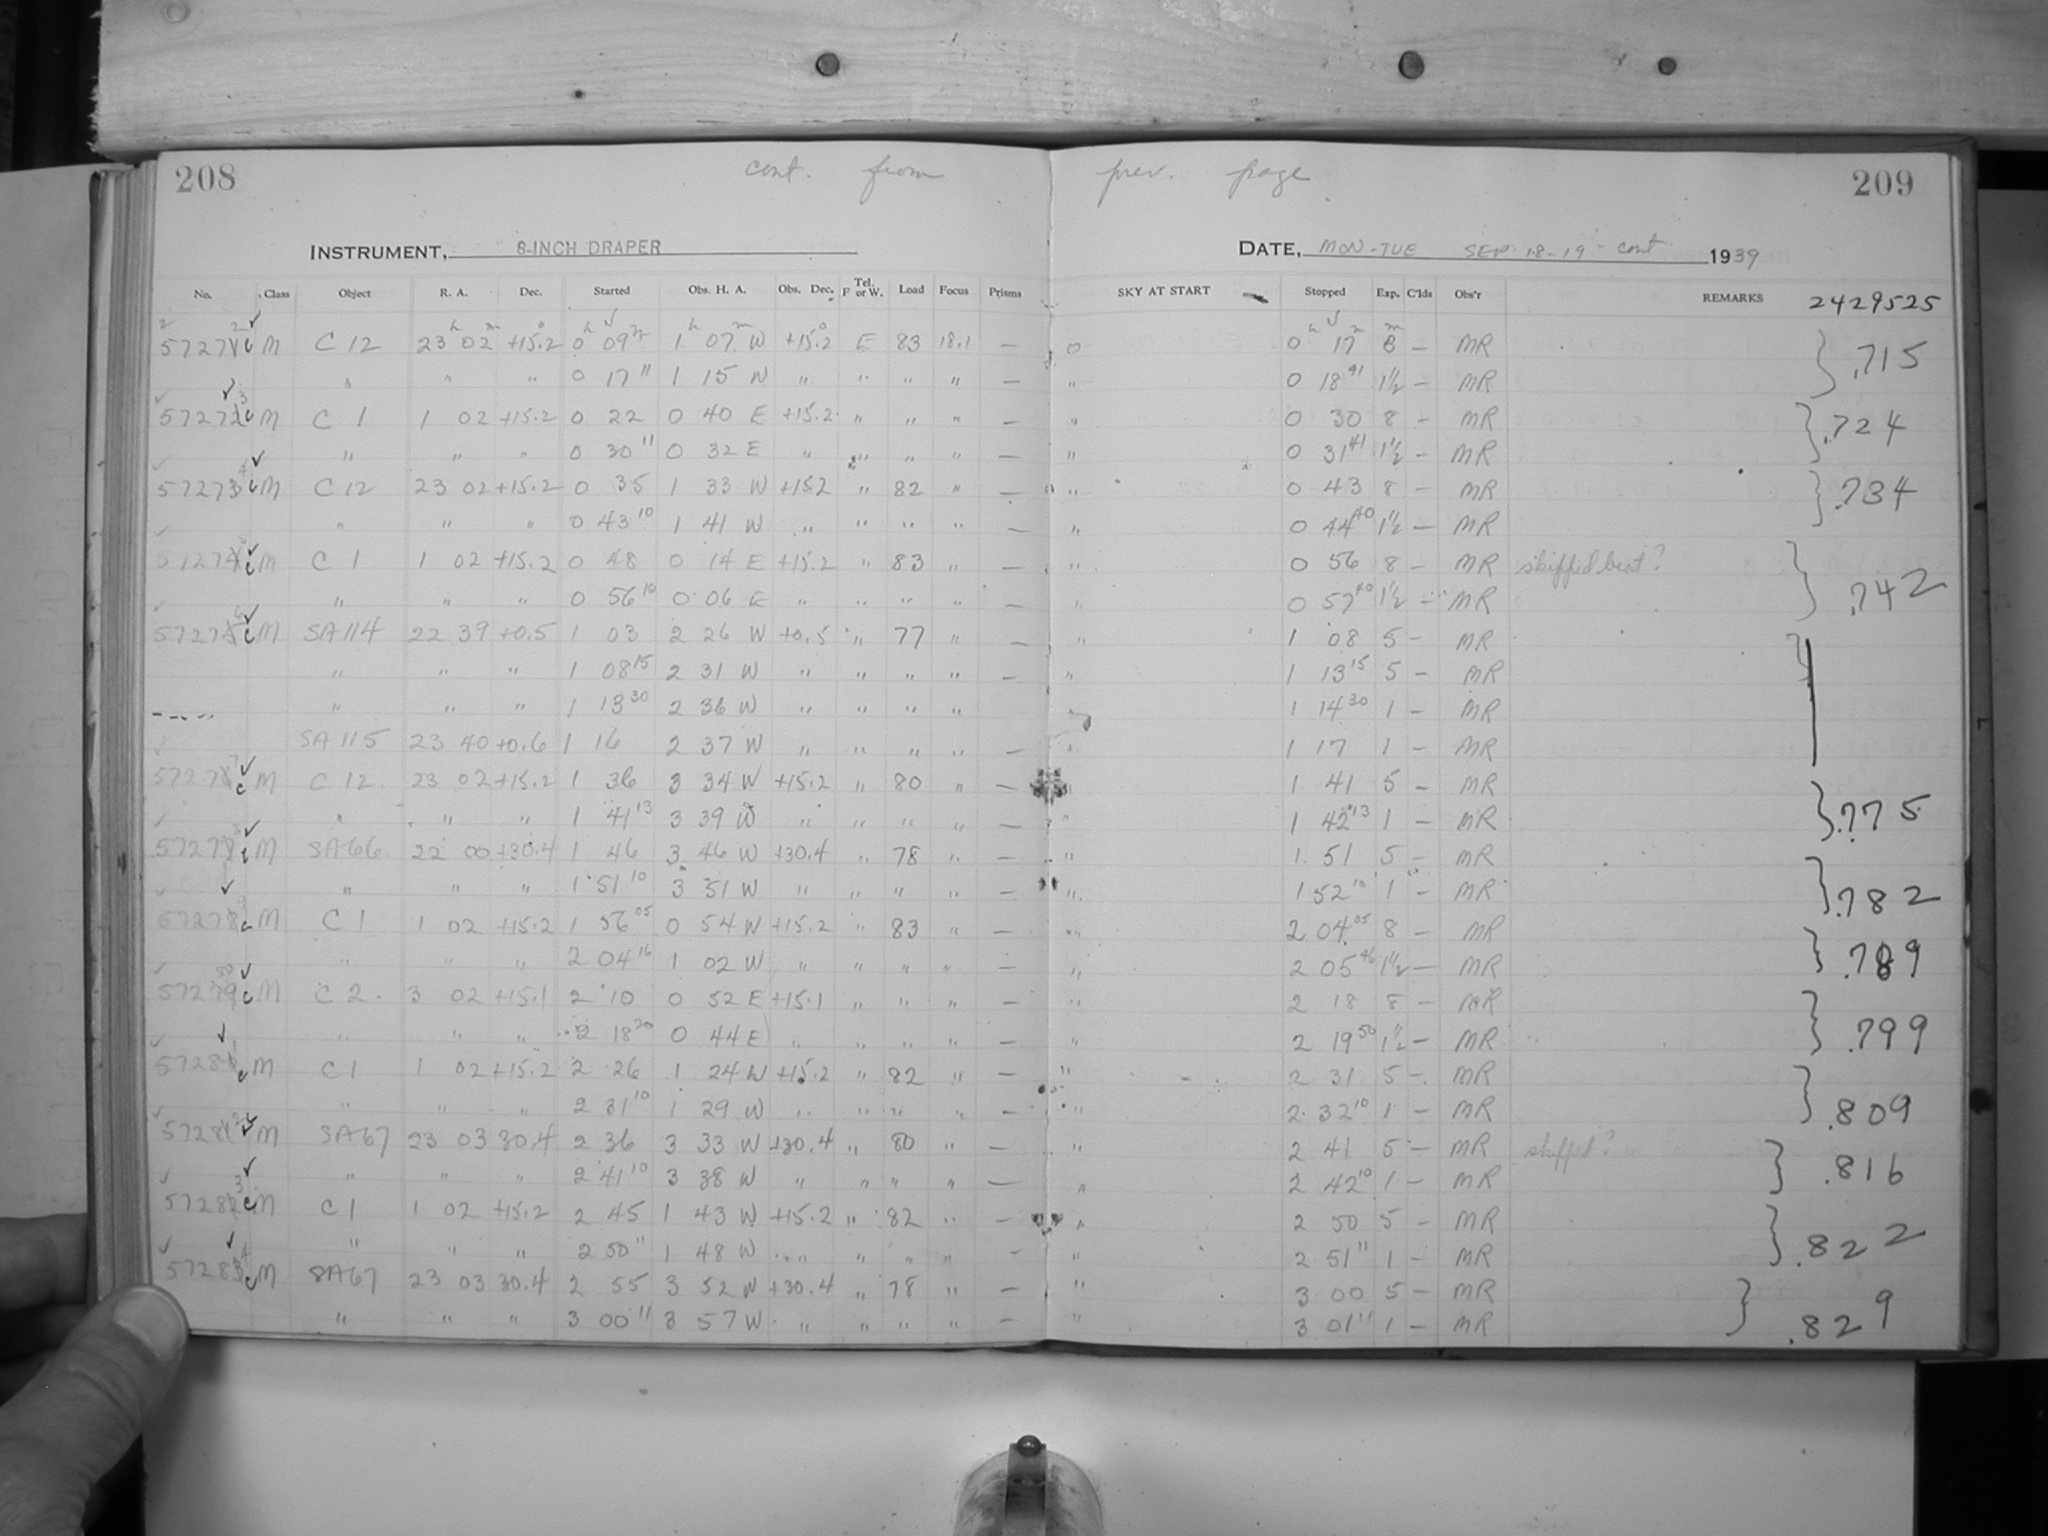 208 cont. from prev. page 209
INSTRUMENT, 8-INCH DRAPER DATE, MON-TUE SEP 18-19 - cont 1939
No. Class Object R. A. Dec. Started Obs. H. A. Obs. Dec. Tel. E or W. Load Focus Prisms SKY AT START Stopped Exp. C'lds Obs'r REMARKS 2429525
M C 12 23h 02m +15.2° 0h 09m 1h 07m W +15.2° E 83 18.1 — 0 0h 17m 8m — MR } .715
" " " 0 17 11 1 15 W " " " " — " 0 18 41 1½ — MR
M C 1 1 02 +15.2 0 22 0 40 E +15.2 " " " — " 0 30 8 — MR } .724
" " " 0 30 11 0 32 E " " " " — " 0 31 41 1½ — MR
M C 12 23 02 +15.2 0 35 1 33 W +15.2 " 82 " — " 0 43 8 — MR } .734
" " " 0 43 10 1 41 W " " " " — " 0 44 40 1½ — MR
M C 1 1 02 +15.2 0 48 0 14 E +15.2 " 83 " — " 0 56 8 — MR skipped beat? } .742
" " " 0 56 10 0 06 E " " " " — " 0 57 40 1½ — MR
M SA 114 22 39 +0.5 1 03 2 26 W +0.5 " 77 " — " 1 08 5 — MR
" " " 1 08 15 2 31 W " " " " — " 1 13 15 5 — MR
" " " 1 13 30 2 36 W " " " " 1 14 30 1 — MR
SA 115 23 40 +0.6 1 16 2 37 W " " " " — " 1 17 1 — MR
M C 12 23 02 +15.2 1 36 3 34 W +15.2 " 80 " — 1 41 5 — MR } .775
" " " 1 41 13 3 39 W " " " " — " 1 42 13 1 — MR
M SA 66 22 00 +30.4 1 46 3 46 W +30.4 " 78 " — " 1 51 5 — MR } .782
" " " 1 51 10 3 51 W " " " " — " 1 52 10 1 — MR
M C 1 1 02 +15.2 1 56 05 0 54 W +15.2 " 83 " — " 2 04 05 8 — MR } .789
" " " 2 04 16 1 02 W " " " " — " 2 05 46 1½ — MR
M C 2 3 02 +15.1 2 10 0 52 E +15.1 " " " — " 2 18 8 — MR } .799
" " " 2 18 20 0 44 E " " " " — " 2 19 50 1½ — MR
M C 1 1 02 +15.2 2 26 1 24 W +15.2 " 82 " — " 2 31 5 — MR } .809
" " " 2 31 10 1 29 W " " " " — " 2 32 10 1 — MR
M SA 67 23 03 30.4 2 36 3 33 W +30.4 " 80 " — " 2 41 5 — MR skipped? } .816
" " " 2 41 10 3 38 W " " " " — " 2 42 10 1 — MR
M C 1 1 02 +15.2 2 45 1 43 W +15.2 " 82 " — " 2 50 5 — MR } .822
" " " 2 50 11 1 48 W " " " " — " 2 51 11 1 — MR
M SA 67 23 03 30.4 2 55 3 52 W +30.4 " 78 " — " 3 00 5 — MR } .829
" " " 3 00 11 3 57 W " " " " — " 3 01 11 1 — MR